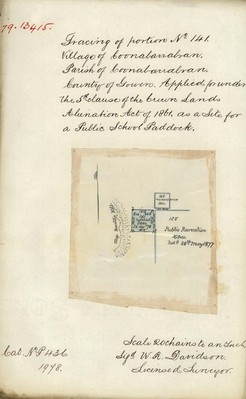 79.13415.
Tracing of portion No. 141.
Village of Coonabarabran.
Parish of Coonabarabran.
County of Gowen. Applied for under
the 5th clause of the Crown Lands
Alienation Act of 1861, as a Site for
a Public School Paddock.
125
Public Recreation
Not. 28th May 1877
Scale 20 chains to an Inch.
Sgd W. R. Davidson.
Licensed Surveyor.
Cat. No. P436
1978.